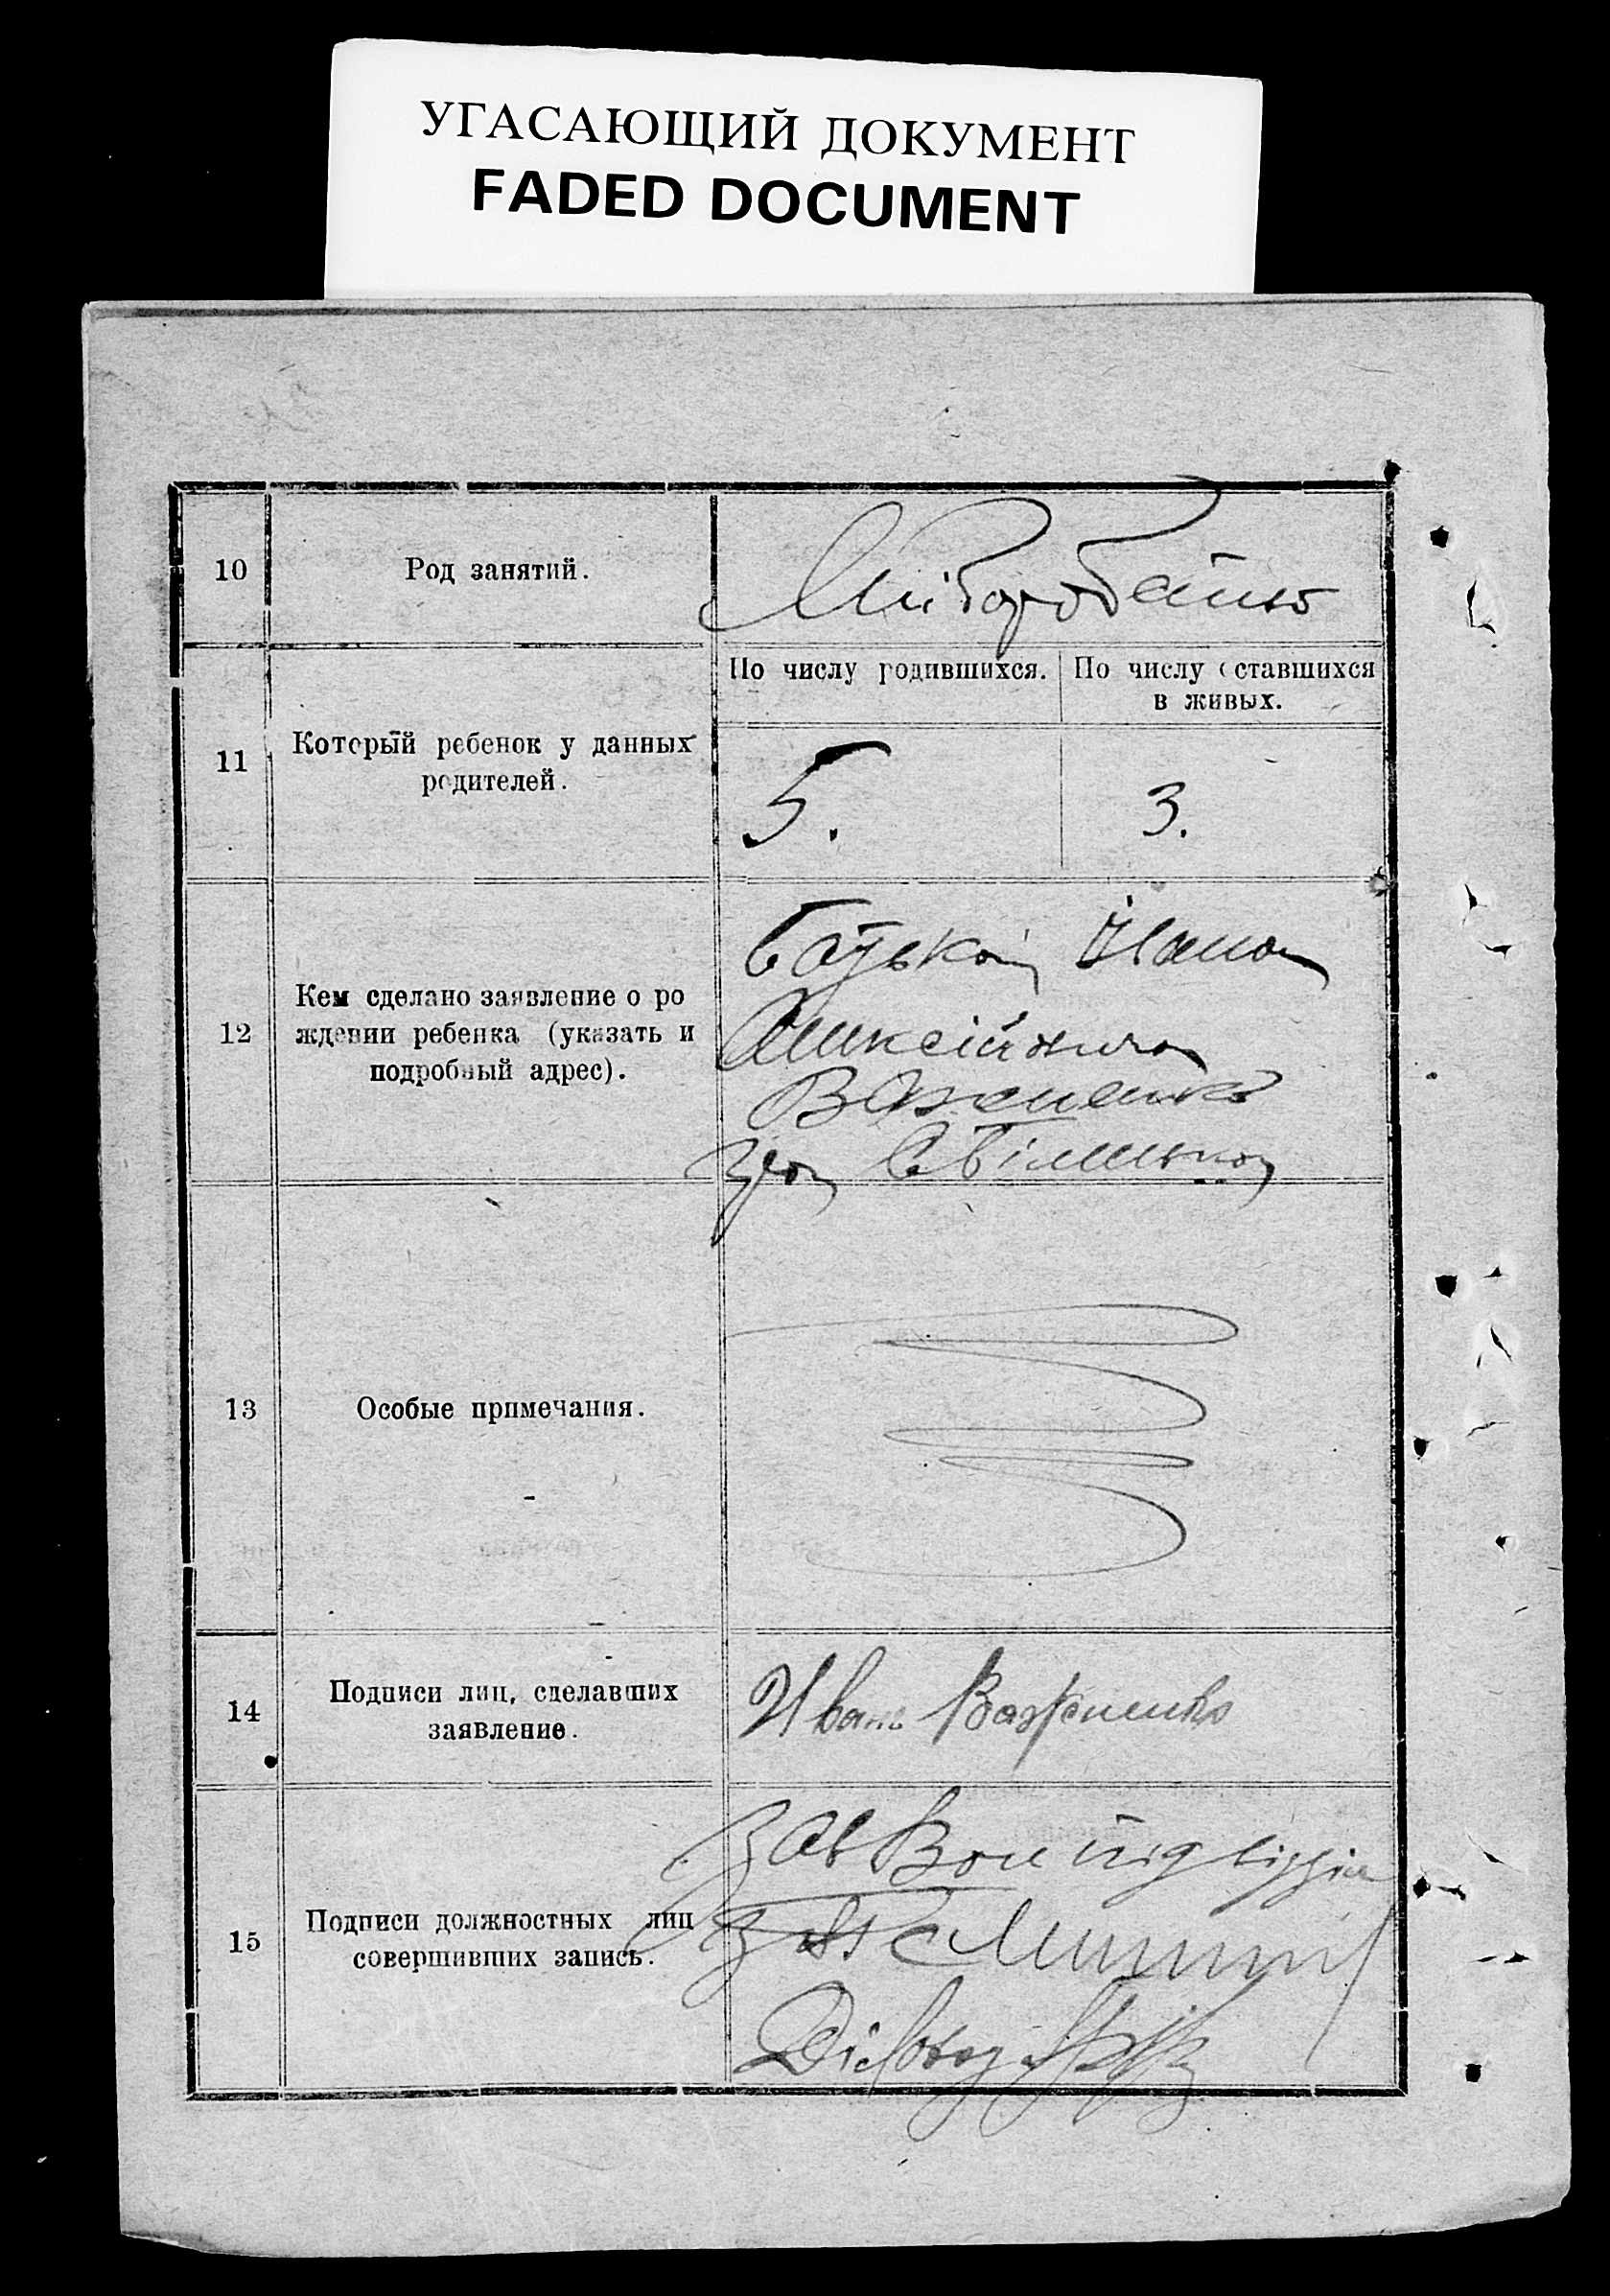 УГАСАЮЩИЙ ДОКУМЕНТ
FADED DOCUMENT
10
Род занятий.
Хлібороб
11
Который ребенок у данных
родителей.
По числу родившихся.
По числу оставшихся
в живых.
5.
3.
12
Кем сделано заявление о ро
ждении ребенка (указать и
подробный адрес).
батьком Іваном
Важненко
13
Особые примечания.
14
Подписи лиц, сделавших
заявление.
Иван Важненко
15
Подписи должностных лиц
совершивших запись.
Діловод